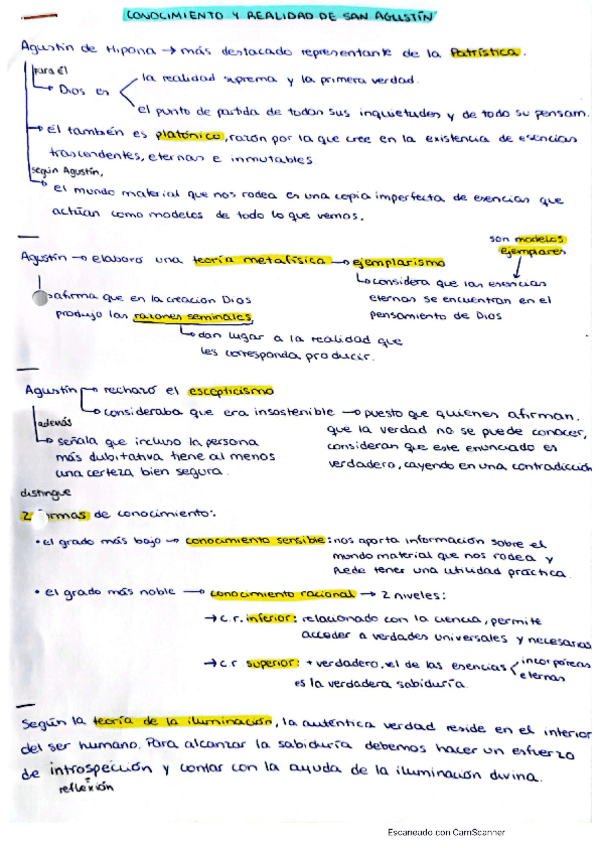 CONOCIMIENTO Y REALIDAD DE SAN AGUSTÍN
Agustín de Hipona → más destacado representante de la Patrística.
para él
Dios es
la realidad suprema y la primera verdad.
el punto de partida de todas sus inquietudes y de todo su pensam.
Él también es platónico, razón por la que cree en la existencia de esencias
trascendentes, eternas e inmutables
según Agustín,
el mundo material que nos rodea es una copia imperfecta de esencias que
actúan como modelos de todo lo que vemos.
son modelos
ejemplares
Agustín → elaboró una teoría metafísica → ejemplarismo
considera que las esencias
eternas se encuentran en el
pensamiento de Dios
afirma que en la creación Dios
produjo las razones seminales
dan lugar a la realidad que
les corresponda producir.
Agustín → rechazó el escepticismo
consideraba que era insostenible → puesto que quienes afirman.
que la verdad no se puede conocer,
consideran que este enunciado es
verdadero, cayendo en una contradicción
además
señala que incluso la persona
más dubitativa tiene al menos
una certeza bien segura.
distingue
2 formas de conocimiento:
• el grado más bajo → conocimiento sensible: nos aporta información sobre el
mundo material que nos rodea y
puede tener una utilidad práctica.
• el grado más noble → conocimiento racional → 2 niveles:
→ c.r. inferior: relacionado con la ciencia, permite
acceder a verdades universales y necesarias
→ c.r superior: + verdadero, el de las esencias
incorpóreas
eternas
es la verdadera sabiduría.
Según la teoría de la iluminación, la auténtica verdad reside en el interior
del ser humano. Para alcanzar la sabiduría debemos hacer un esfuerzo
de introspección y contar con la ayuda de la iluminación divina.
reflexión
Escaneado con CamScanner